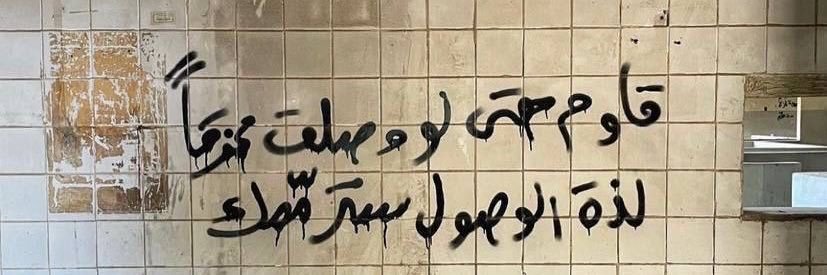 قاوم حتى لو وصلت ممزقاً
لذة الوصول سترممك